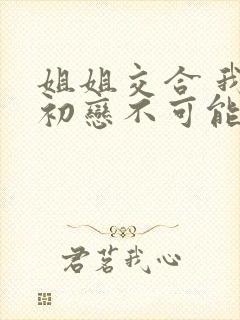 姐姐交合 我
初戀不可能
君茗我心